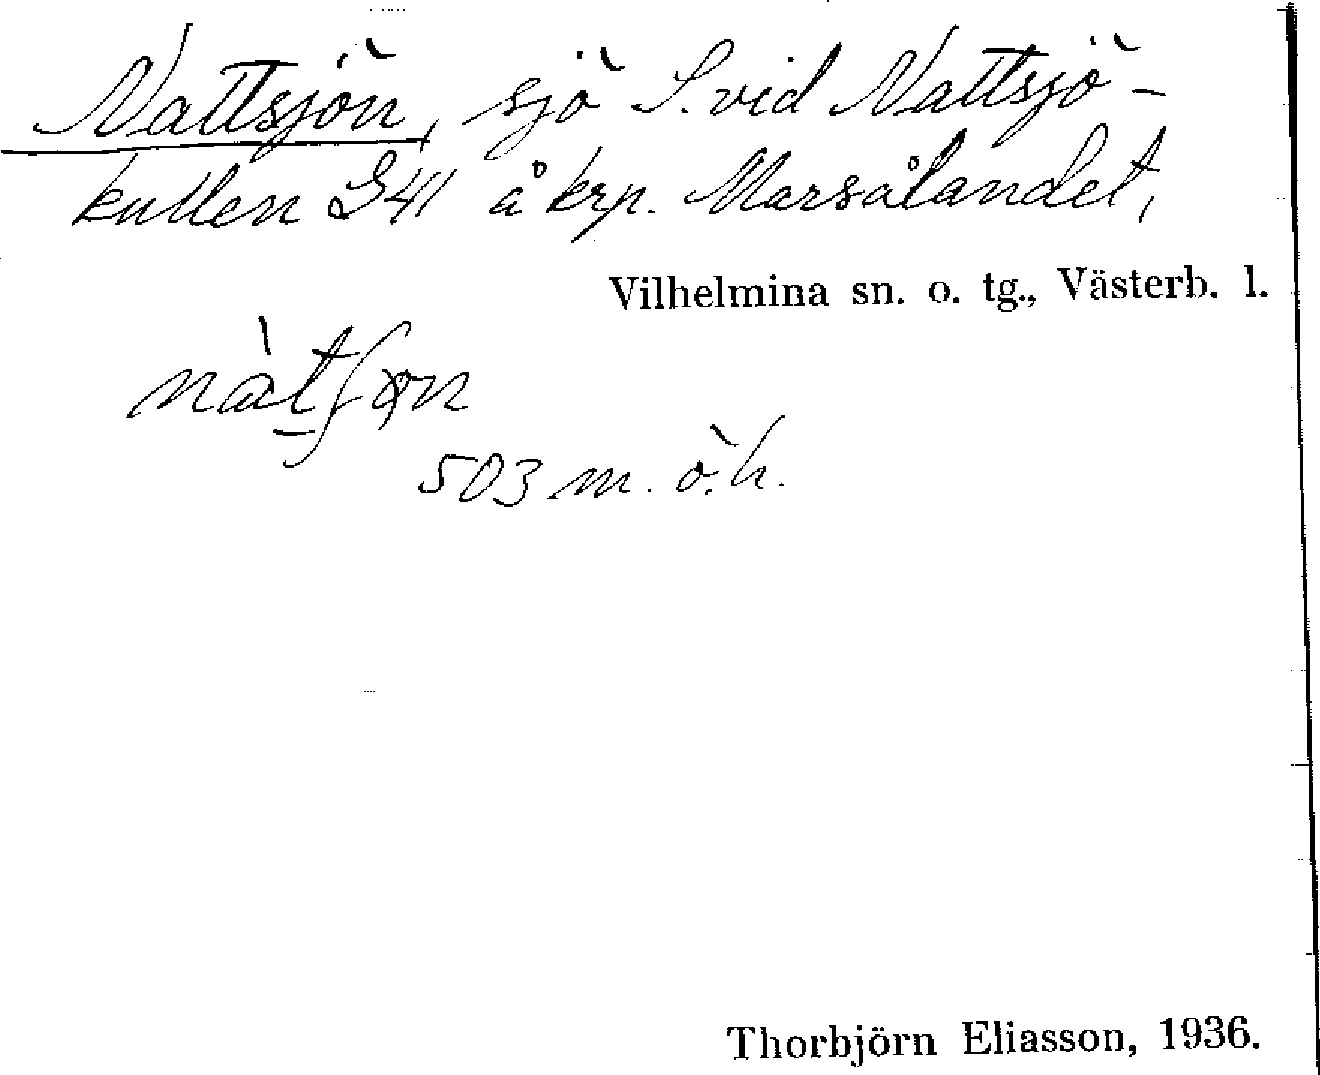 Nattsjön, sjö S. vid Nattsjö-
kullen G41 å krp. Marsålandet,
Vilhelmina sn. o. tg., Västerb. l.
503 m. ö. h.
Thorbjörn Eliasson, 1936.